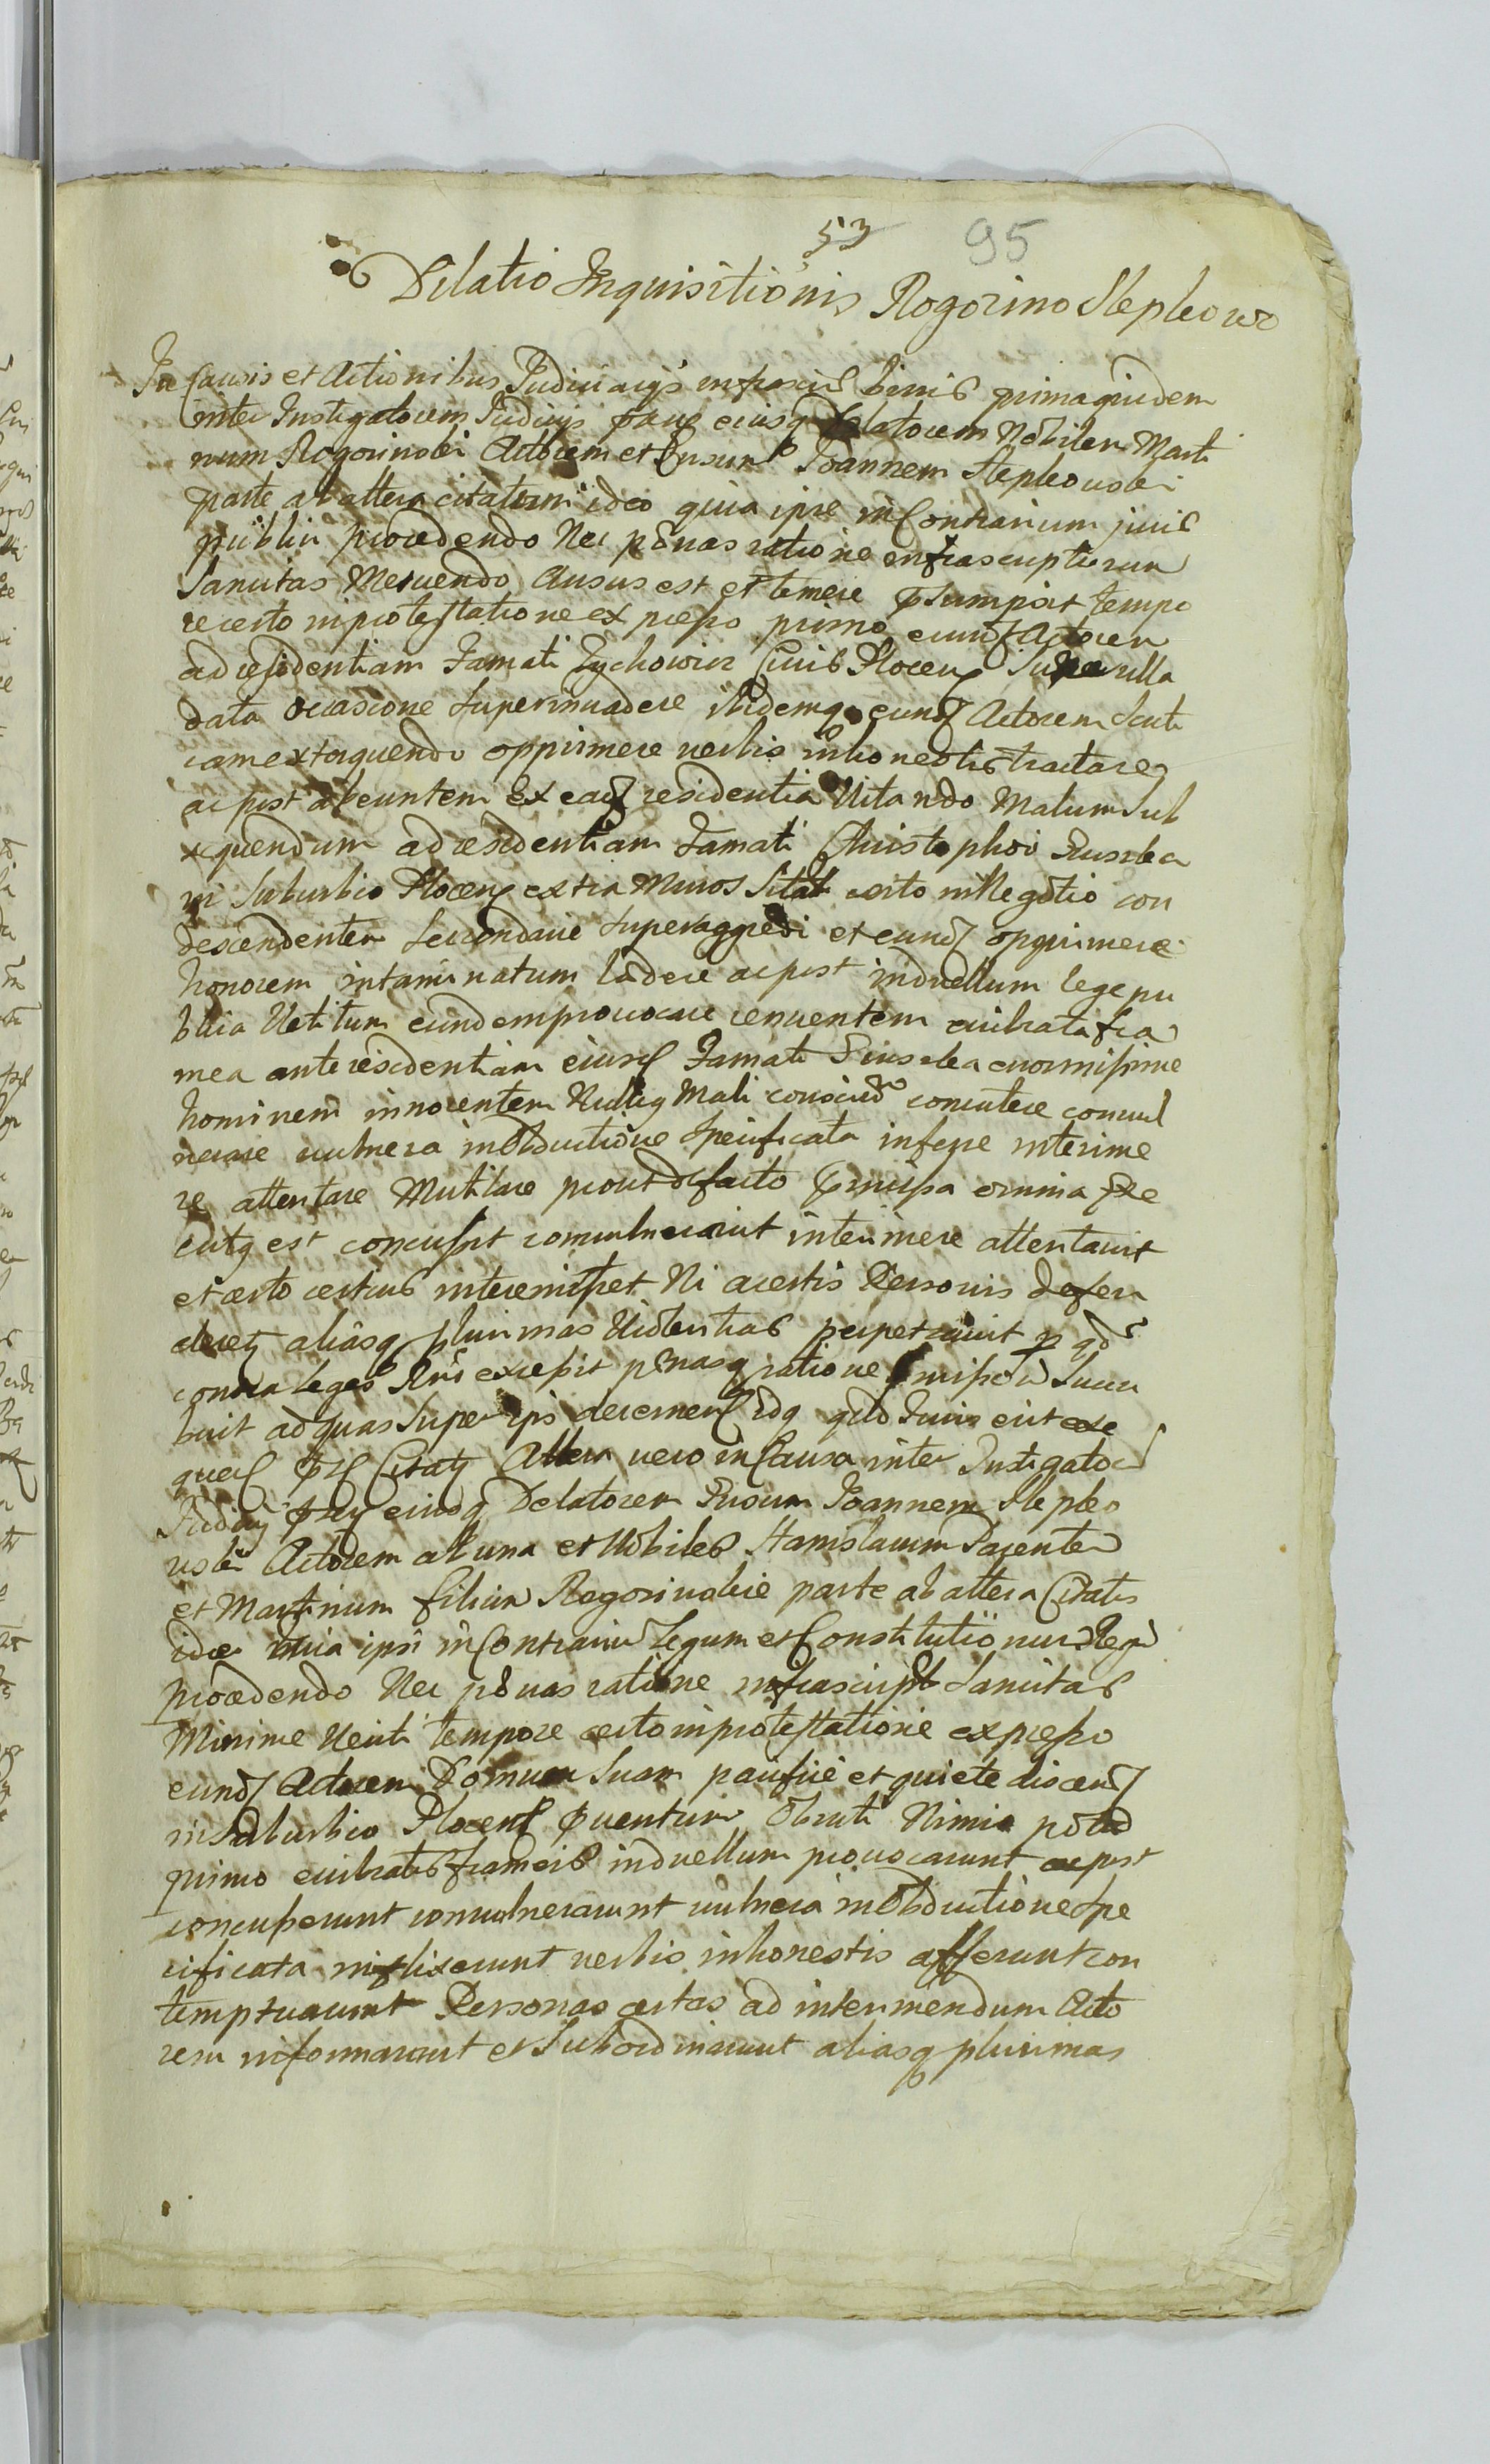 53 95
Dilatio Inquisitionis Rogozino Slepkowo
In Causis et Actionibus Judiciarys binis prima quidem
inter Instigatorem Judicys eiusq Delatorem Nobilem Marti
num Rogozinski Actorem et Joannem Slepkowski
parte ab altera citatum ideo quia ipse in Contrarium juris
publici procedendo Nec pænas ratione infrascriptorum
Sancitas Metuendo Ausus est et temere tempo
re certo in protestatione expresso primo eund Actorem
ad residentiam Famati Zychowicz Civis Plocen nulla
data occasione Superinuadere ibidemq eund Actorem Scuti
cam extorquendo opprimere verbis inhonestis tractare
ac post abeuntem ex ead residentia Vitando Malum Sub
sequendum ad residentiam Famati Christophori
in Suburbio Plocen extra Muros Sitat certo in Negotio con
descendentem Secondarie Superaggredi et eund opprimere
honorem intaminatum lædere ac post in duellum lege pu
blica Vetitum eundem prouocare renuentem euibrata fra
mea ante residentiam eiusd Famati enormissime
hominem innocentem Nulliq Mali concutere convul
nerare vulnera in Obductione Specificata inferre interime
re attentare Mutilare prout de facto omnia exe
cutq est concussit convulnerauit interimere attentauit
et certo certius interemisset Ni a certis Personis defen
deretq aliasq plurimas Violentias perpetrauit
contra leges excessit pænasq ratione Succu
buit ad quas Super ipso decernend idq
Citatq Altera vero in Causa inter Instigator
Judicij eiusdq Delatorem Joannem Slepko
wski Actorem ab una et Nobiles Stanislaum Parentem
et Martinum filium Rogozinskie parte ab altera Citatos
ideo quia ipsi in Contrariu Legum et Constitutionum Regni
procedendo Nec pænas ratione infrascript Sancitas
Minime Veriti tempore certo in protestatione expresso
eund Actorem Domum Suam pacifice et quiete
in Suburbio Plocens Obruti Nimio
primo euibratis frameis in duellum prouocarunt ac post
concusserunt convulnerarunt vulnera in Obductione Spe
cificata inflixerunt verbis inhonestis affecerunt con
temptuarunt Personas certas ad interimendum Acto
rem informarunt et Subordinarunt aliasq plurimas